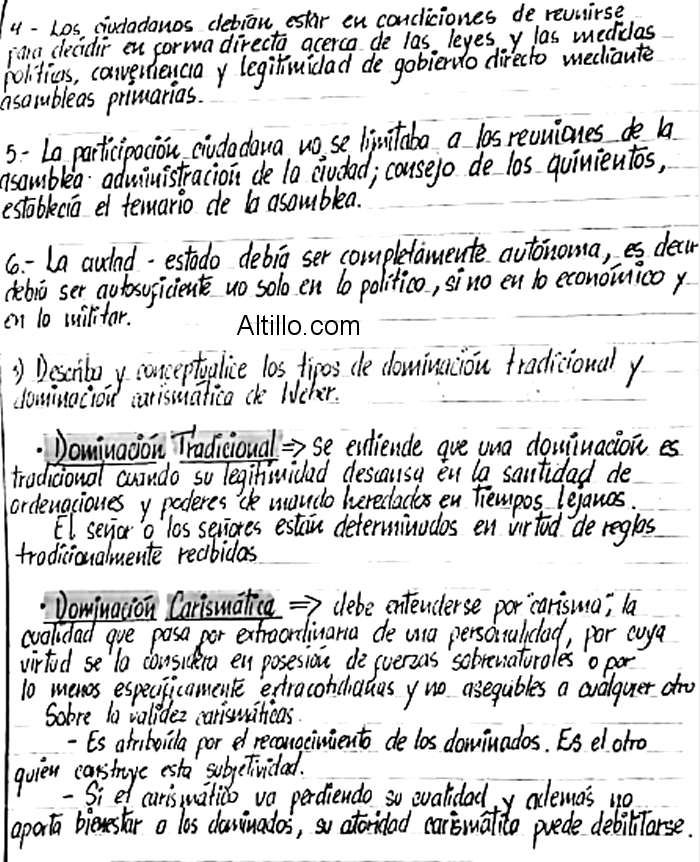 4 - Los ciudadanos debían estar en condiciones de reunirse
para decidir en forma directa acerca de las leyes y las medidas
políticas, conveniencia y legitimidad de gobierno directo mediante
asambleas primarias.
5.- La participación ciudadana no se limitaba a los reuniones de la
asamblea. administración de la ciudad; consejo de los quinientos,
establecía el temario de la asamblea.
6.- La ciudad - estado debía ser completamente autónoma, es decir
debió ser autosuficiente no solo en lo político, si no en lo económico y
en lo militar.
Altillo.com
) Describa y conceptualice los tipos de dominación tradicional y
dominación carismática de Weber.
• Dominación Tradicional => Se entiende que una dominación es
tradicional cuando su legitimidad descansa en la santidad de
ordenaciones y poderes de mando heredados en tiempos lejanos.
El señor o los señores están determinados en virtud de reglas
tradicionalmente recibidas
• Dominación Carismática => debe entenderse por "carisma", la
cualidad que pasa por extraordinaria de una personalidad, por cuya
virtud se la considera en posesión de fuerzas sobrenaturales o por
lo menos específicamente extracotidianas y no asequibles a cualquier otro
Sobre la validez carismáticas.
- Es atribuíla por el reconocimiento de los dominados. Es el otro
quien construye esta subjetividad.
- Si el carismático va perdiendo su cualidad y además no
aporta bienestar a los dominados, su atoridad carismática puede debilitarse.